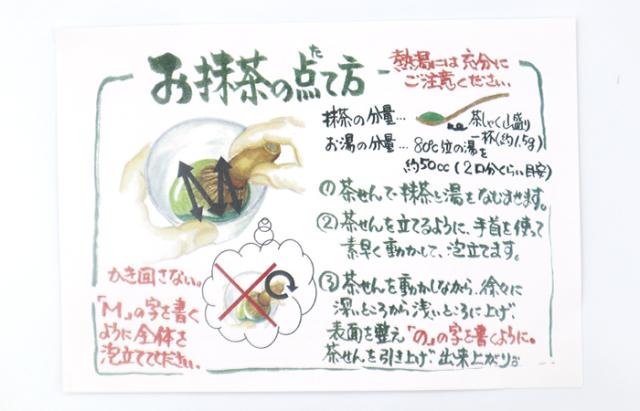 お抹茶の点て方
た
熱湯には充分に
ご注意ください。
抹茶の分量… 茶しゃく山盛り
一杯(約1.5g)
お湯の分量… 80℃位の湯を
約50cc(2口分くらい目安)
①茶せんで抹茶と湯をなじませます。
②茶せんを立てるように、手首を使って
素早く動かして、泡立てます。
③茶せんを動かしながら、徐々に
深いところから浅いところに上げ、
表面を整え「の」の字を書くように。
茶せんを引き上げ出来上がり。
かき回さない。
「M」の字を書く
ように全体を
泡立ててください。